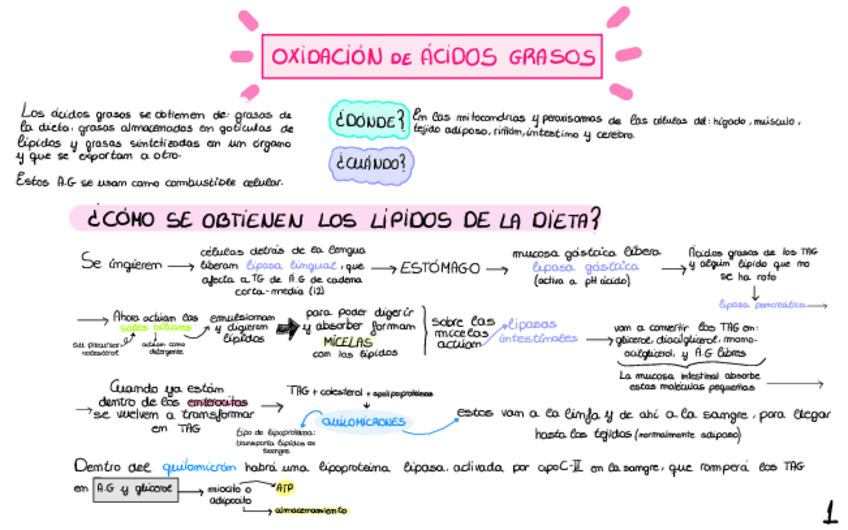 OXIDACIÓN DE ÁCIDOS GRASOS
Los ácidos grasos se obtienen de: grasas de
la dieta, grasas almacenadas en gotículas de
lípidos y grasas sintetizadas en un órgano
y que se exportan a otro.
Estos A.G se usan como combustible celular.
¿DÓNDE?
En las mitocondrias y peroxisomas de las células del: hígado, músculo,
tejido adiposo, riñón, intestino y cerebro.
¿CUÁNDO?
¿CÓMO SE OBTIENEN LOS LÍPIDOS DE LA DIETA?
Se ingieren
células detrás de la lengua
liberan lipasa lingual, que
afecta a TG de A.G de cadena
corta-media (12)
ESTÓMAGO
mucosa gástrica libera
lipasa gástrica
(activa a pH ácido)
Ácidos grasos de los TAG
y algún lípido que no
se ha roto
lipasa pancreática
Ahora actúan las
sales biliares
su precursor
colesterol
actúan como
detergente
emulsionan
y digieren
lípidos
para poder digerir
y absorber forman
MICELAS
con los lípidos
sobre las
micelas
actúan
lipasas
intestinales
van a convertir los TAG en:
glicerol, diacilglicerol, mono-
acilglicerol, y A.G libres
La mucosa intestinal absorbe
estas moléculas pequeñas
Cuando ya están
dentro de los enterocitos
se vuelven a transformar
en TAG
TAG + colesterol + apolipoproteínas
QUILOMICRONES
tipo de lipoproteína:
transporta lípidos en
sangre
estos van a la linfa y de ahí a la sangre, para llegar
hasta los tejidos (normalmente adiposo)
Dentro del quilomicrón habrá una lipoproteína lipasa, activada por apoC-II en la sangre, que romperá los TAG
en A.G y glicerol
miocito o
adipocito
ATP
almacenamiento
1